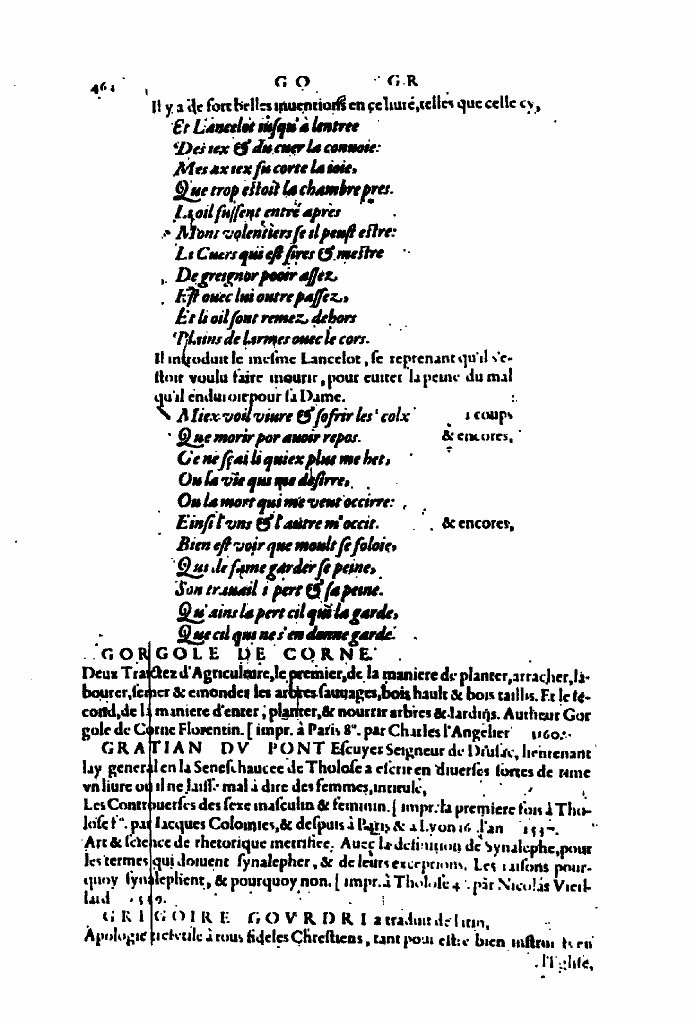 464 GO GR
Il y a de fort belles inuentions en ce liuré, telles que celle cy,
Et Lancelot iusqu'à lentree
Des iex & du cuer la conuoie:
Mes ax iex fu corte la ioie,
Que trop estoit la chambre pres.
Li oil fussent entré après
Mout volentiers se il peust estre:
Li Cuers qui est sires & mestre
De greignor pooir assez,
Est ouec lui outre passez,
Et li oil sont remez dehors
Plains de larmes ouec le cors.
Il introduit le mesme Lancelot, se reprenant qu'il s'e-
stoit voulu faire mourir, pour euiter la peine du mal
qu'il enduroit pour sa Dame.
Miex voil viure & sofrir les colx ı coups
Que morir por auoir repos. & encores,
Ce ne sçai li quiex plus me het,
Ou la vie qui me desirre,
Ou la mort qui me veut occirre:
Einsi l'vns & l'autre m'occit. & encores,
Bien est voir que moult se foloie,
Qui de fame garder se peine,
Son trauail i pert & sa peine.
Qu'ains la pert cil qui la garde,
Que cil qui ne s'en donne garde.
GORGOLE DE CORNE.
Deux Traictez d'Agriculture, le premier, de la maniere de planter, arracher, la-
bourer, semer & emonder les arbres sauuages, bois hault & bois taillis. Et le se-
cond, de la maniere d'enter, planter, & nourrir arbres & Iardins. Autheur Gor
gole de Corne Florentin. [impr. à Paris 8°. par Charles l'Angelier 1560.
GRATIAN DV PONT Escuyer Seigneur de Drusac, lieutenant
lay general en la Seneschaucee de Tholose a escrit en diuerses sortes de rime
vn liure ou il ne laisse mal à dire des femmes, intitulé,
Les Controuerses des sexe masculin & feminin. [impr. la premiere fois à Tho-
lose f°. par Iacques Colomies, & despuis à Paris & a Lyon 16 l'an 1537.
Art & science de rhetorique metrifiee. Auec la definition de Synalephe, pour
les termes qui doiuent synalepher, & de leurs exceptions. Les raisons pour-
quoy synalephent, & pourquoy non. [impr. à Tholose 4°. par Nicolas Vieil-
lard
GRIGOIRE GOVRDRI a traduit de latin,
Apologie à tous fideles Chrestiens, tant pour estre bien en
l'Eglise,